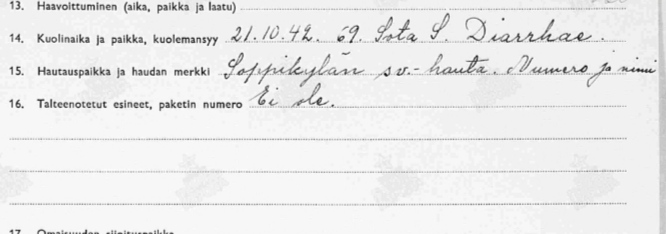 13. Haavoittuminen (aika, paikka ja laatu)
14. Kuolinaika ja paikka, kuolemansyy 21.10.42. 69. Sota S. Diarrhae.
15. Hautauspaikka ja haudan merkki Soppikylän sv.-hauta. Numero ja nimi
16. Talteenotetut esineet, paketin numero Ei ole.
17.